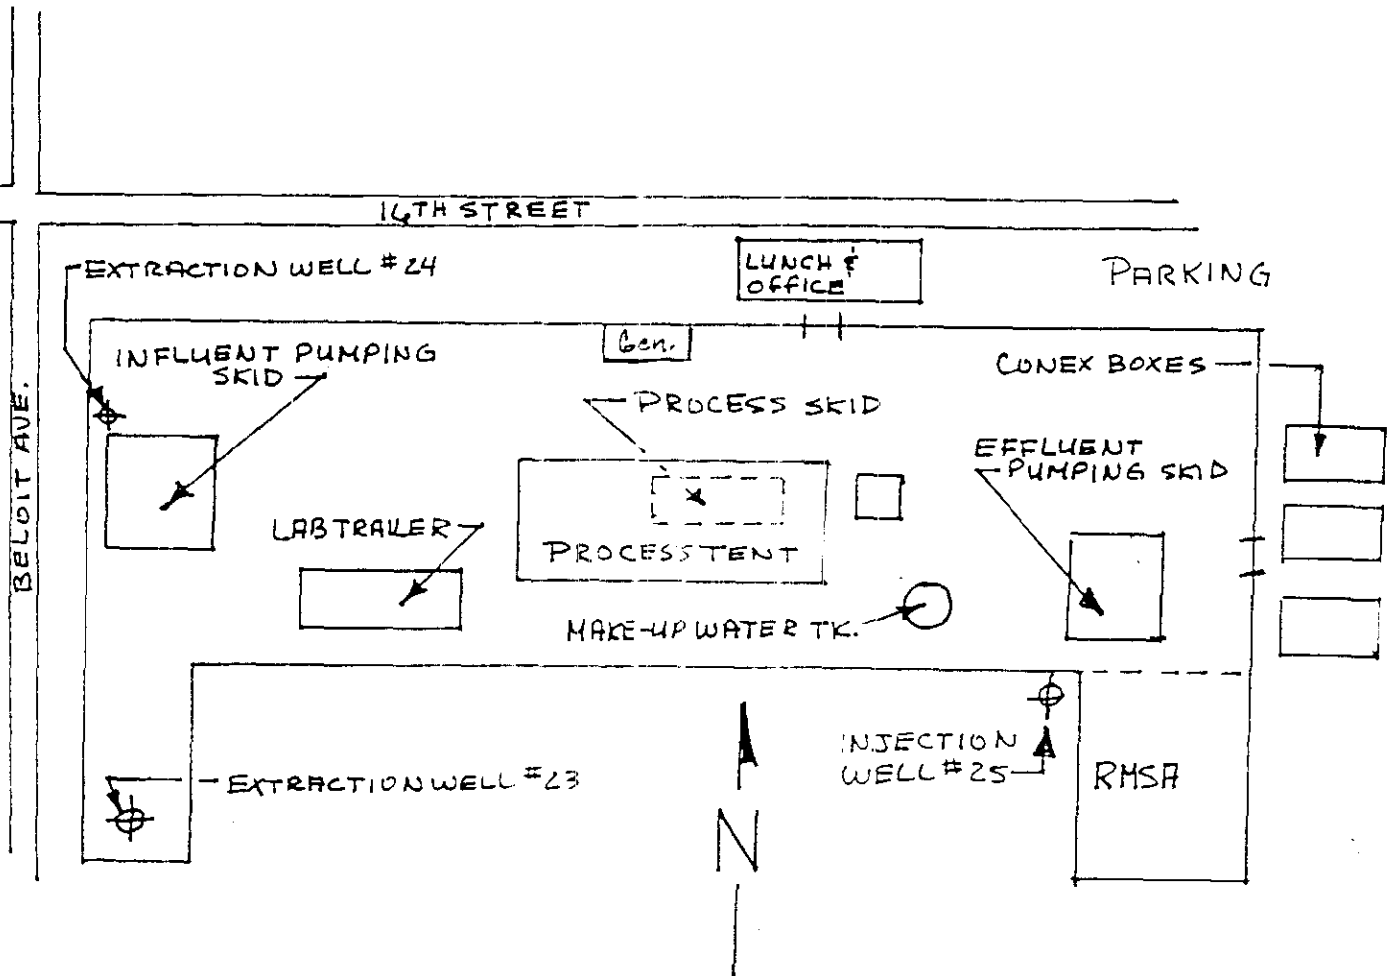 16TH STREET
EXTRACTION WELL #24
LUNCH &
OFFICE
PARKING
Gen.
INFLUENT PUMPING
SKID
CONEX BOXES
PROCESS SKID
BELOIT AVE.
EFFLUENT
PUMPING SKID
LAB TRAILER
PROCESS TENT
MAKE-UP WATER TK.
INJECTION
WELL #25
RMSA
EXTRACTION WELL #23
N